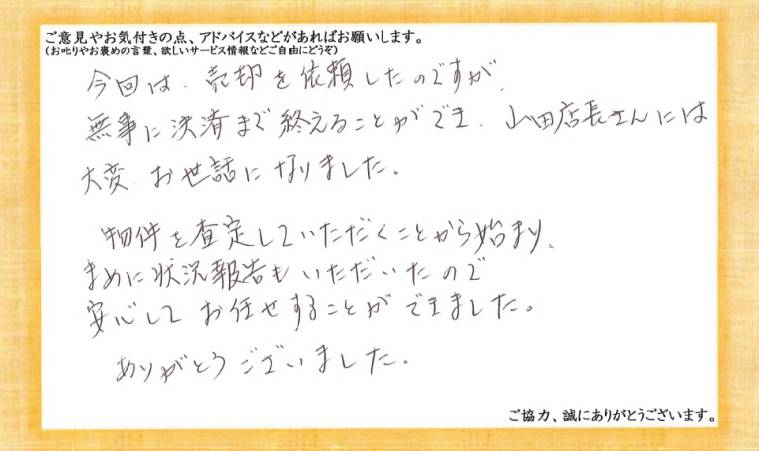 ご意見やお気付きの点、アドバイスなどがあればお願いします。
(お叱りやお褒めの言葉、欲しいサービス情報などご自由にどうぞ)
今回は、売却を依頼したのですが、
無事に決済まで終えることができ、山田店長さんには
大変、お世話になりました。
物件を査定していただくことから始まり、
まめに状況報告もいただいたので
安心してお任せすることができました。
ありがとうございました。
ご協力、誠にありがとうございます。